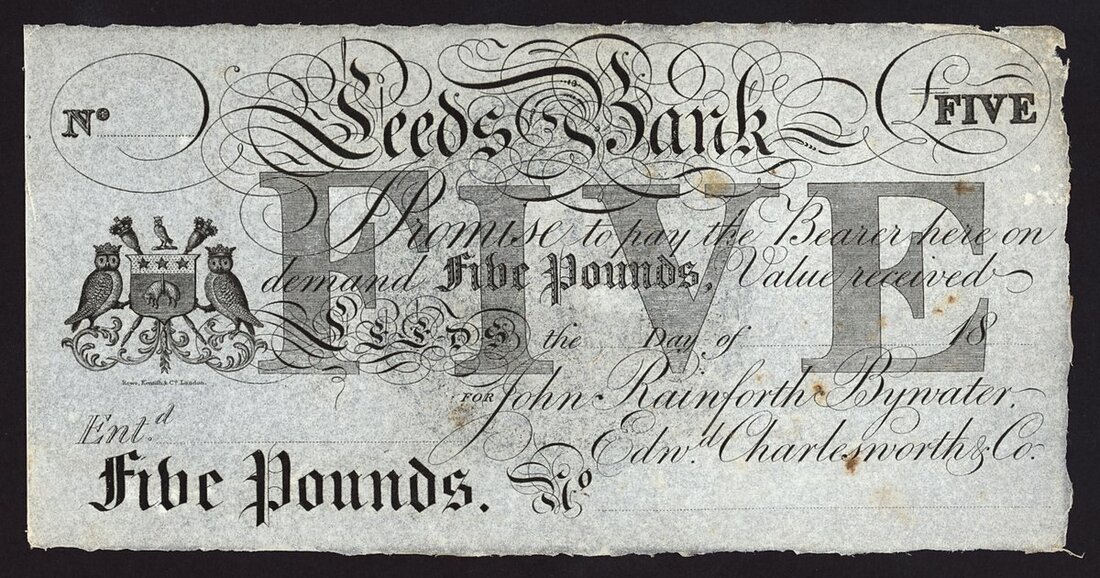 Leeds Bank
No
£FIVE
FIVE
I Promise to pay the Bearer here on
demand Five Pounds, Value received
LEEDS the Day of 18
Rowe, Kentish & Co. London.
FOR John Rainforth Bywater,
Edwd. Charlesworth & Co.
Entd.
Five Pounds. No